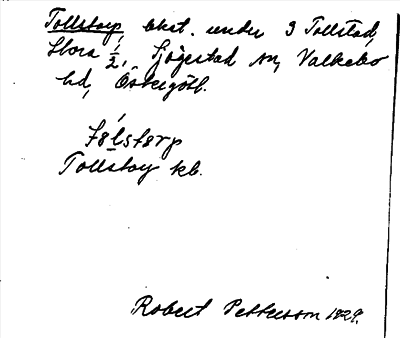 Tollstorp bkst. under 3 Tollstad,
Stora 1/2, Sjögestad sn, Valkebo
hd, Östergötl.
Tollstorp kb.
Robert Pettersson 1929.